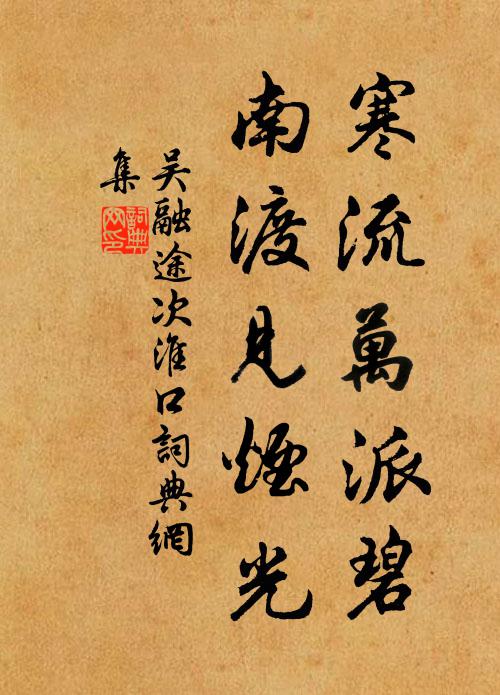 寒流萬派碧
南渡見煙光
吴融途次淮口詞典網
集
詞典
网印